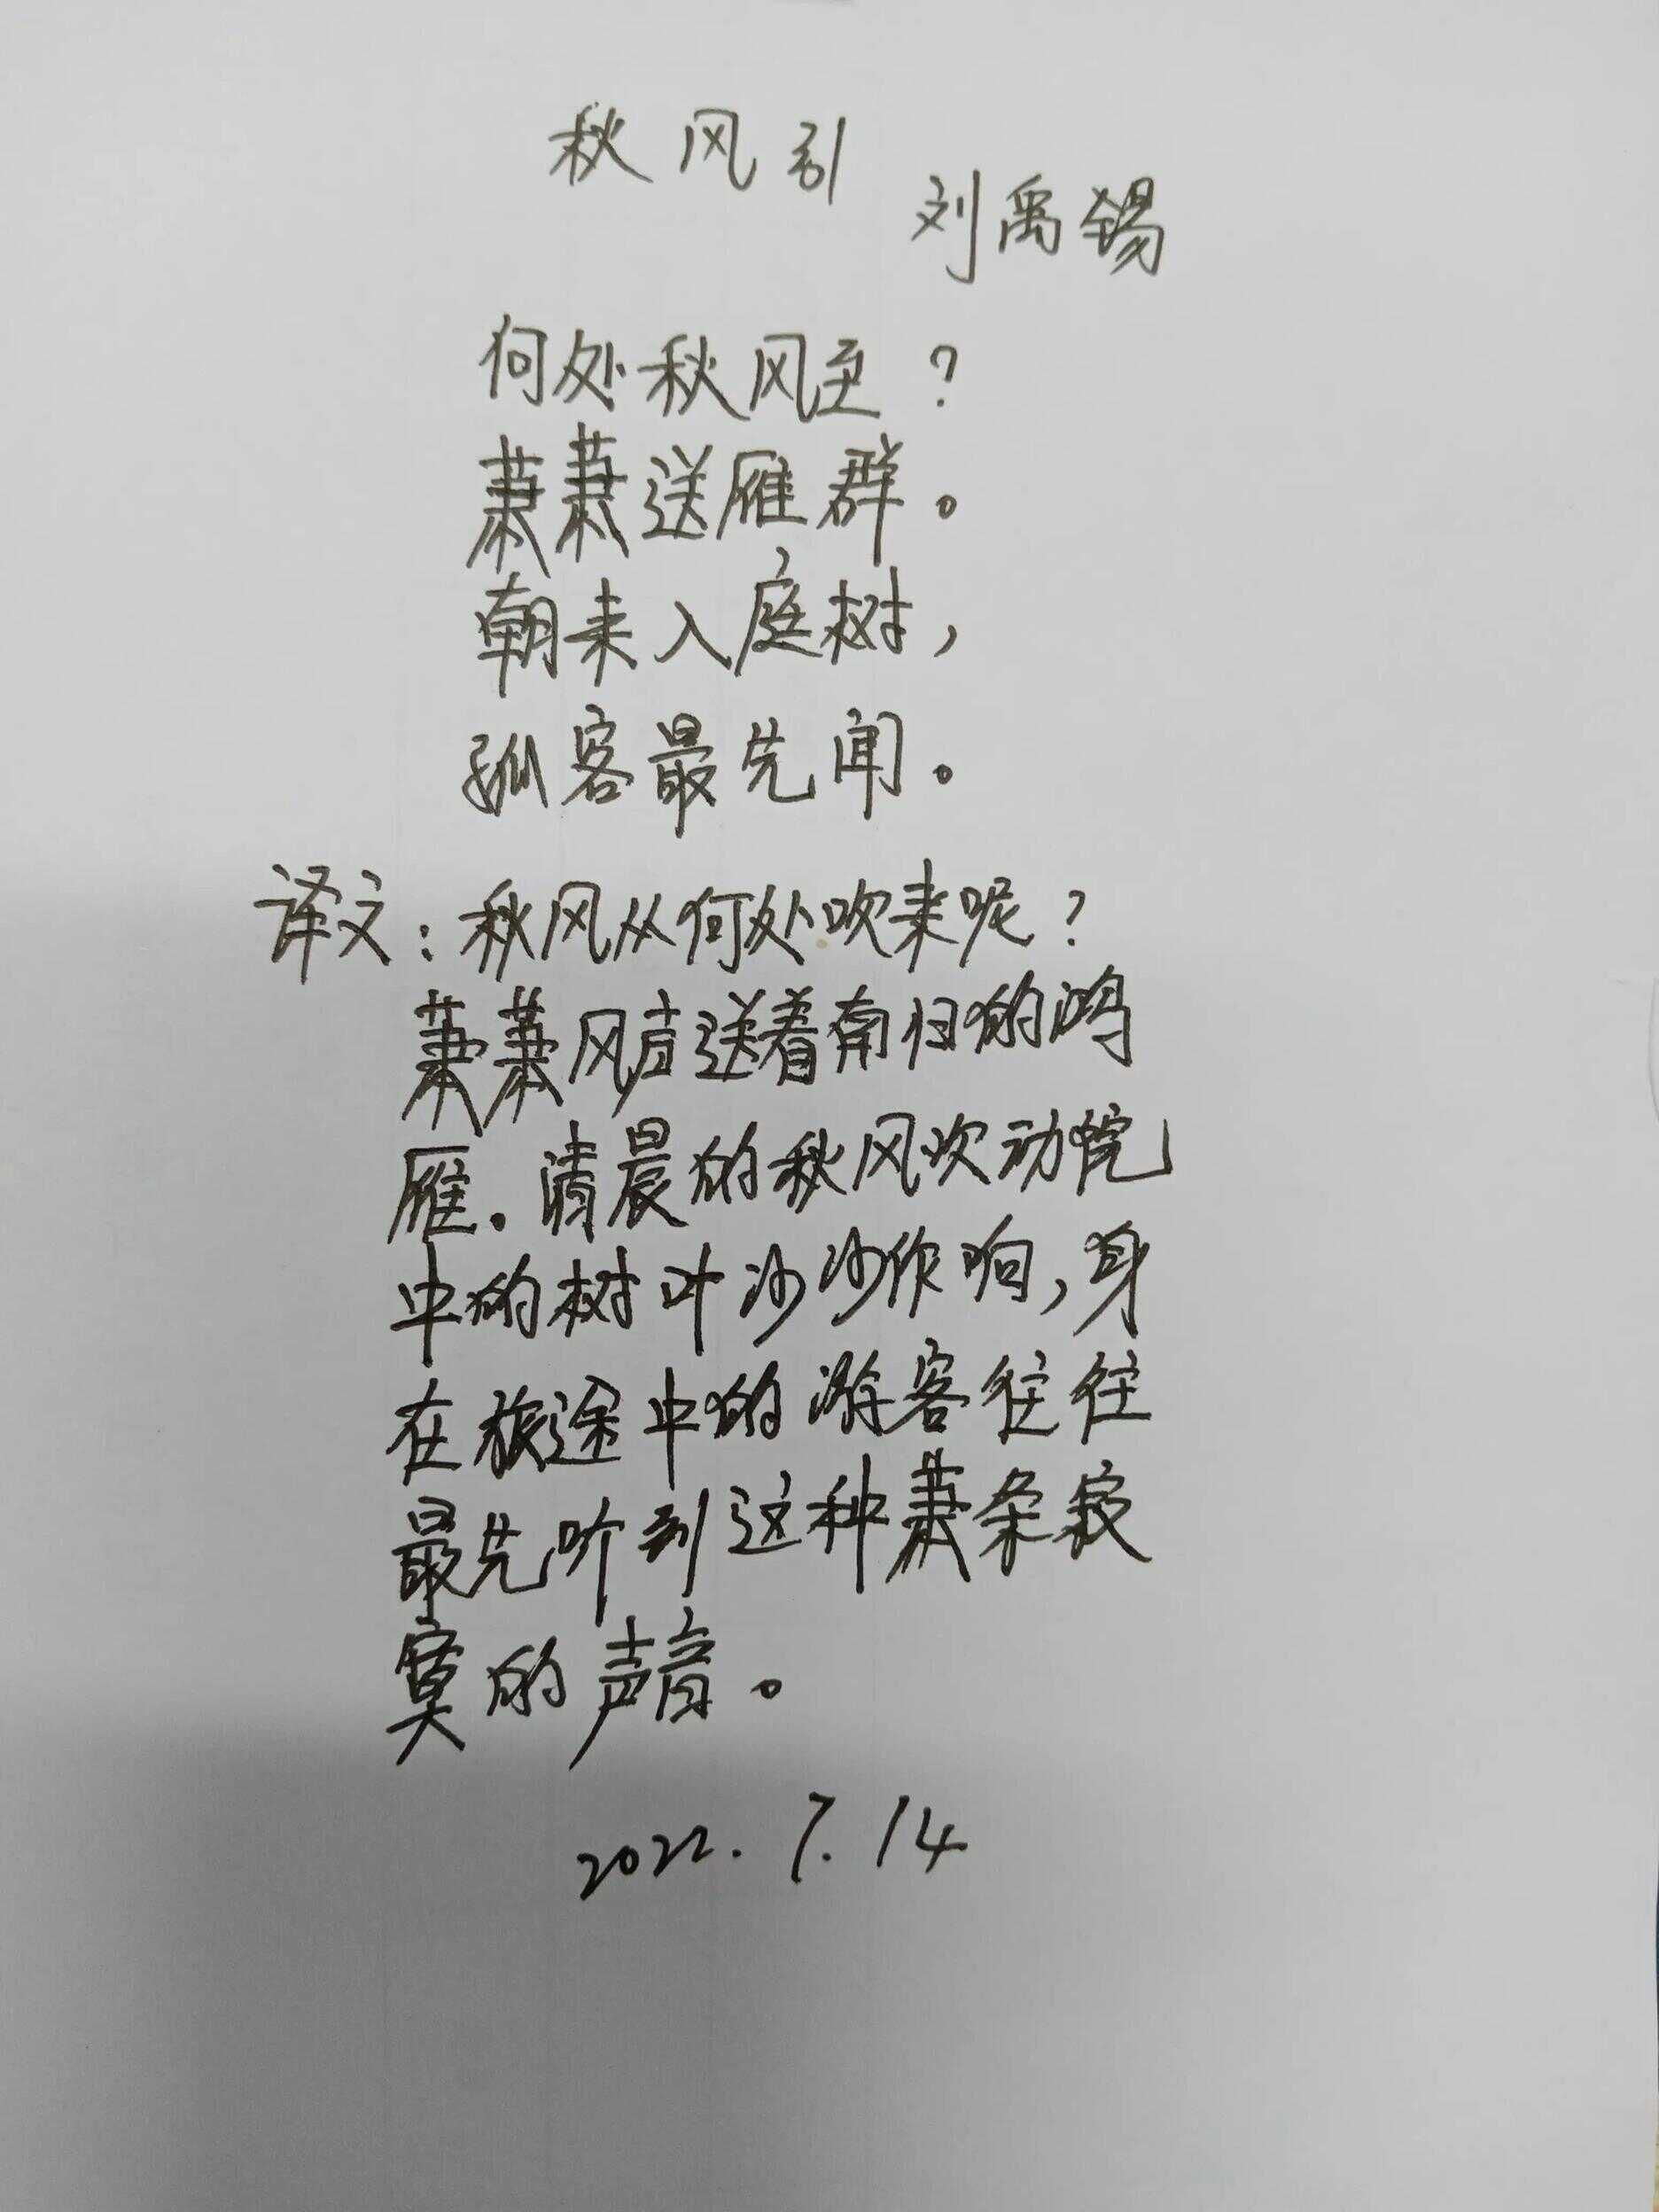 秋风引
刘禹锡
何处秋风至？
萧萧送雁群。
朝来入庭树，
孤客最先闻。
译文：秋风从何处吹来呢？
萧萧风声送着南归的鸿
雁。清晨的秋风吹动院
中的树叶沙沙作响，身
在旅途中的游客往往
最先听到这种萧条寂
寞的声音。
2022.7.14